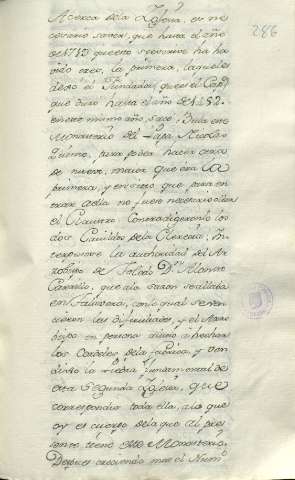 286
Acerca dela Iglesia, es ne
cesario saver, que hasta el año
de 1712 que esto se escrive ha ha
vido tres, la primera, la que les
dexó el Fundador, que es el Capi
que duró hasta el año de 1452.
en este mismo año, sacó Bula este
Monasterio del Papa Nicolao
Quinto, para poder hacer otra
de nuevo, maior que era la
primera, y en sitio que para en
trar en ella no fuese necesario
el Claustro Contradigeronlo los
dos Cavildos dela Clerecia, In
terpusose la authoridad del Ar
zobispo de Toledo Dn. Alonso
Carrillo, que ala sazon se allaba
en Talavera, con lo qual se ven
cieron las dificultades, y el Arzo
bispo en persona asistió a hechar
los Cordeles dela fabrica, y ben
dixo la Piedra fundamental de
esta Segunda Iglesia, que
correspondia toda ella, a lo que
oy es cuerpo dela que al pre
sente tiene este Monasterio.
Despues creciendo mas el Num